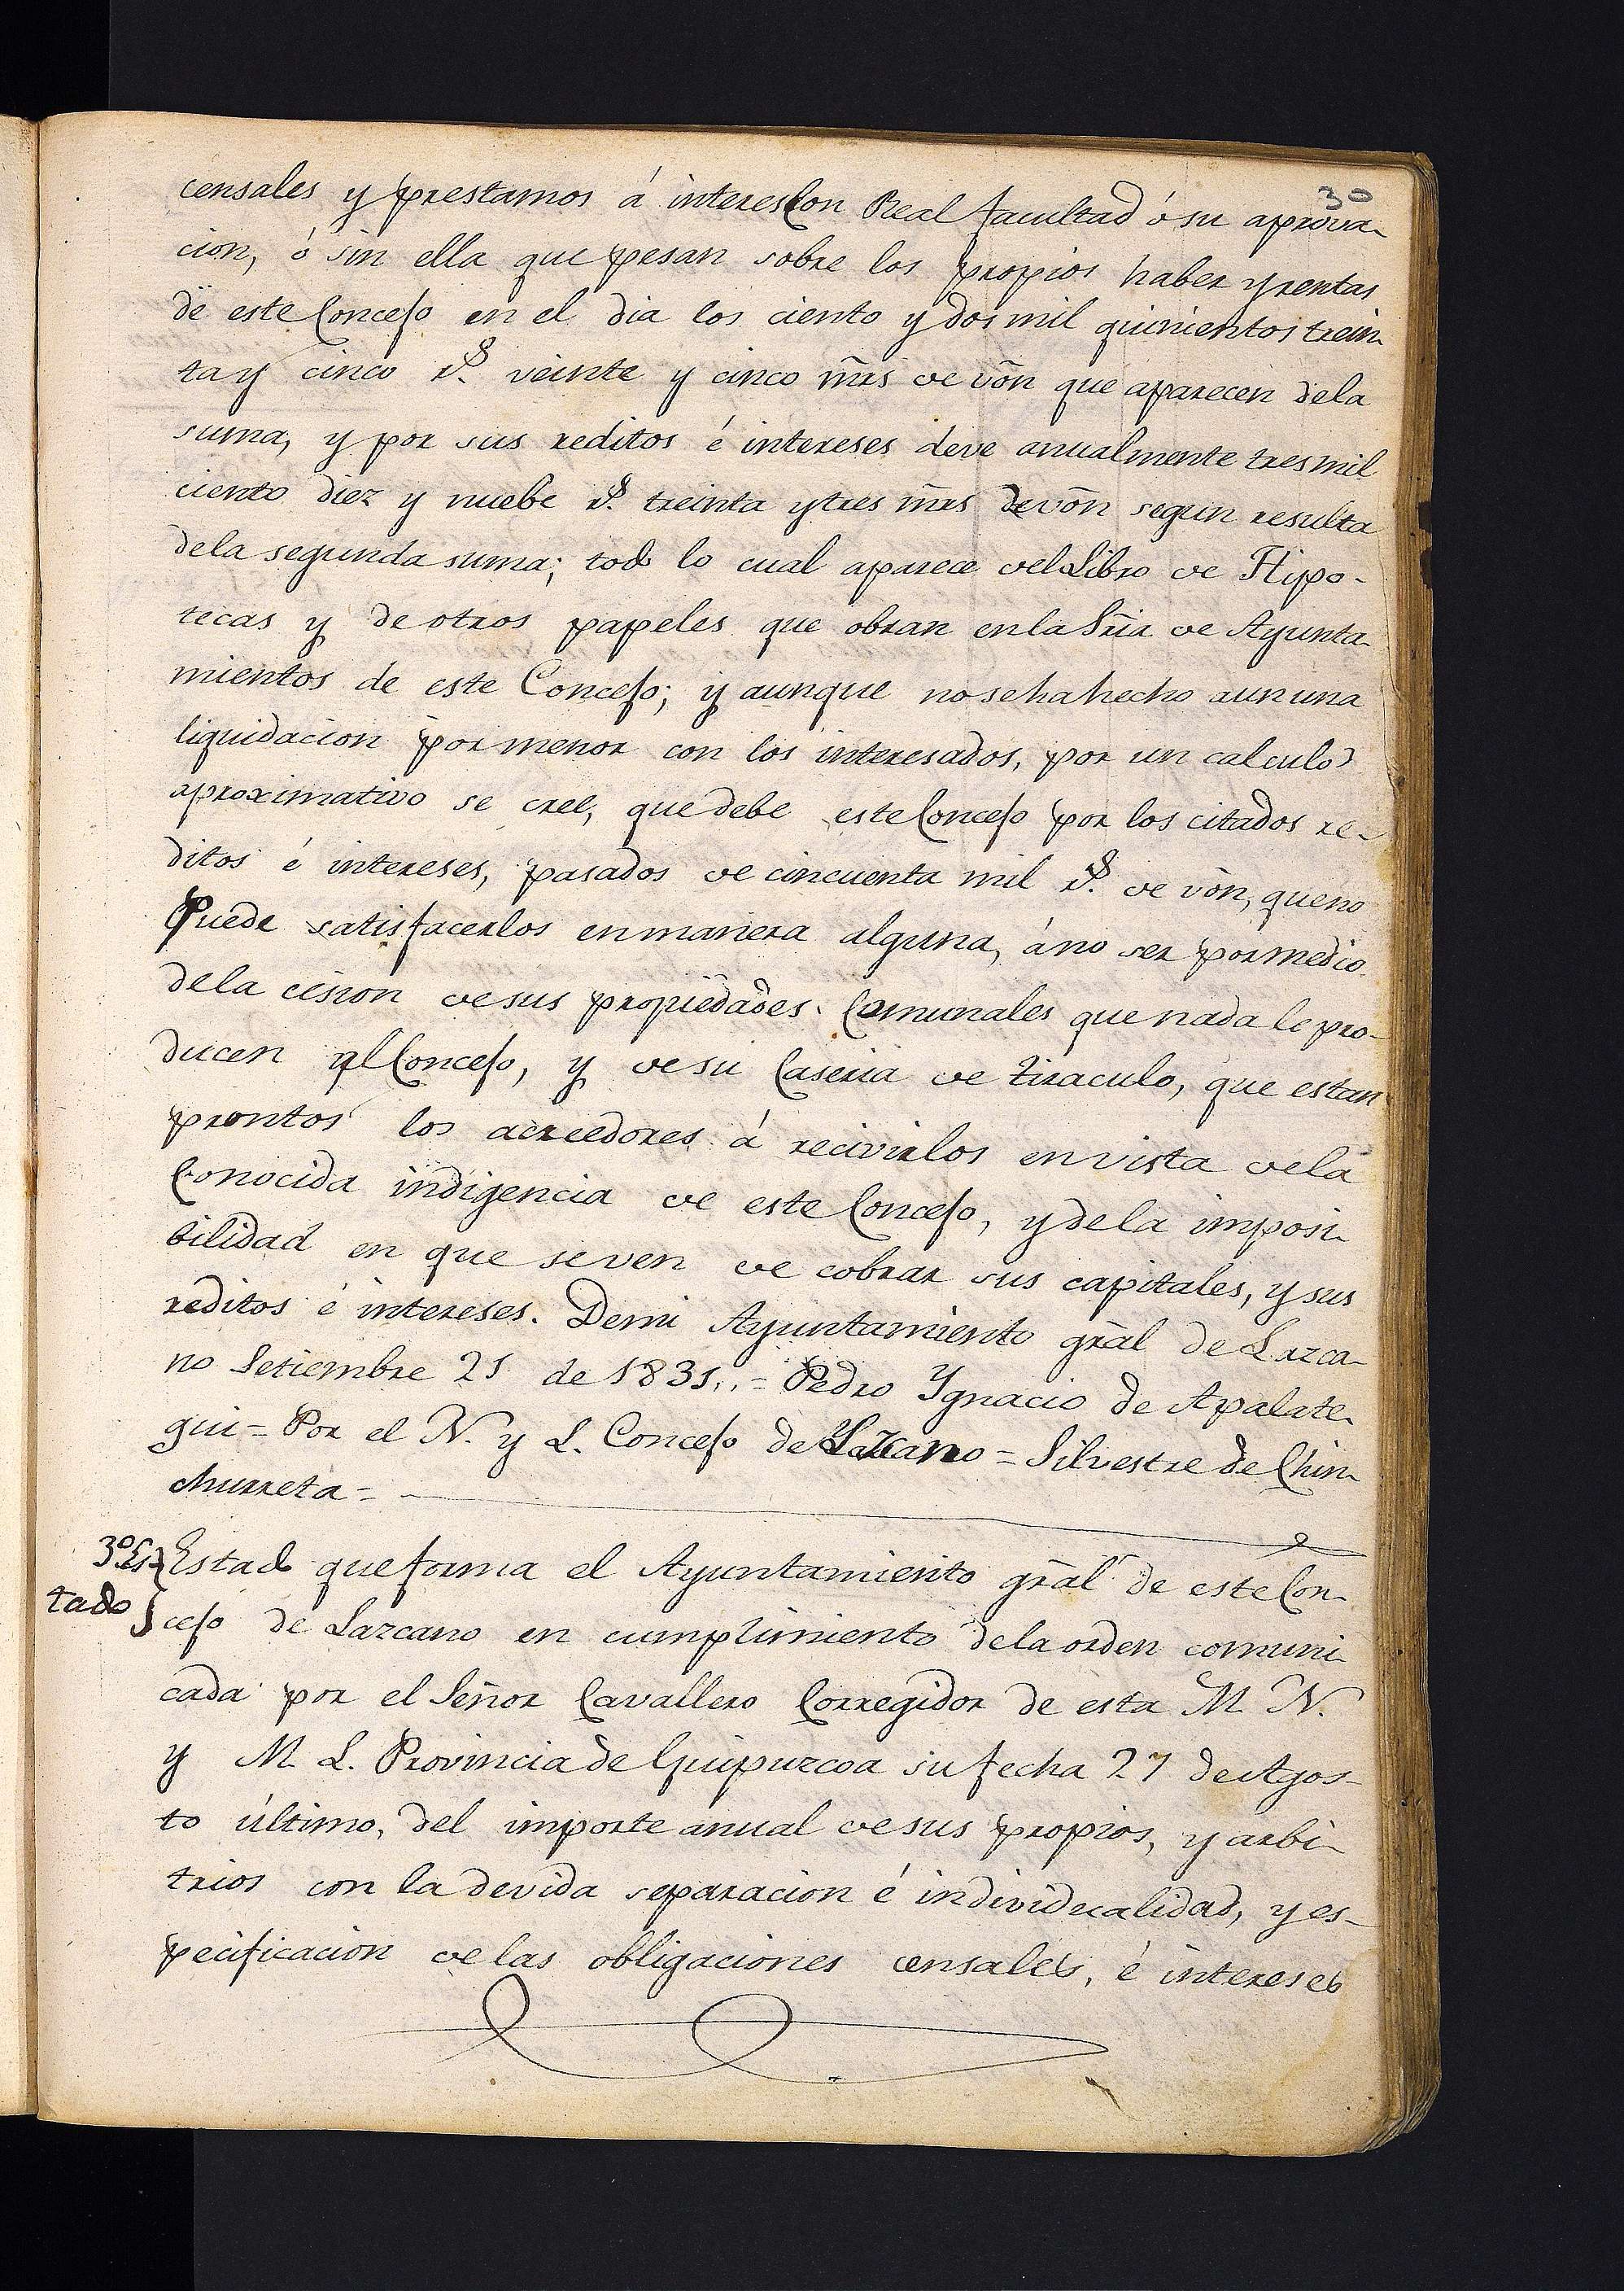 30
censales y prestamos á interes Con Real facultad ó su aprova-
cion, ó sin ella que pesan sobre los propios haber y rentas
de este Concejo en el dia los ciento y dos mil quinientos trein-
ta y cinco rs. veinte y cinco mrs de von que aparecen dela
suma, y por sus reditos é intereses deve anualmente tres mil
ciento diez y nuebe rs. treinta y tres mrs de von segun resulta
dela segunda suma; todo lo cual aparece del Libro de Hipo-
tecas y de otros papeles que obran en la Sria de Ayunta-
mientos de este Concejo; y aunque no se ha hecho aun una
liquidacion por menor con los interesados, por un calculo
aproximativo se cree, que debe este Concejo por los citados re-
ditos é intereses, pasados de cincuenta mil rs. de von, que no
Puede satisfacerlos en manera alguna, á no ser por medio
dela cesion de sus propiedades Comunales que nada le pro-
ducen al Concejo, y de su Caseria de tiraculo, que estan
prontos los acreedores á recivirlos en vista de la
Conocida indigencia de este Concejo, y de la imposi-
bilidad en que se ven de cobrar sus capitales, y sus
reditos é intereses. De mi Ayuntamiento gral de Lazca-
no Setiembre 21 de 1831,, = Pedro Ygnacio de Apalate-
gui = Por el N. y L. Concejo de Lazcano = Silvestre de Chin-
churreta =
3º Es-
tado
Estado que forma el Ayuntamiento gral de este Con-
cejo de Lazcano en cumplimiento de la orden comuni-
cada por el Señor Cavallero Corregidor de esta M. N.
y M. L. Provincia de Guipuzcoa su fecha 27 de Agos-
to último, del importe anual de sus propios, y arbi-
trios con la devida separacion é individualidad, y es-
pecificacion de las obligaciones censales, é intereses